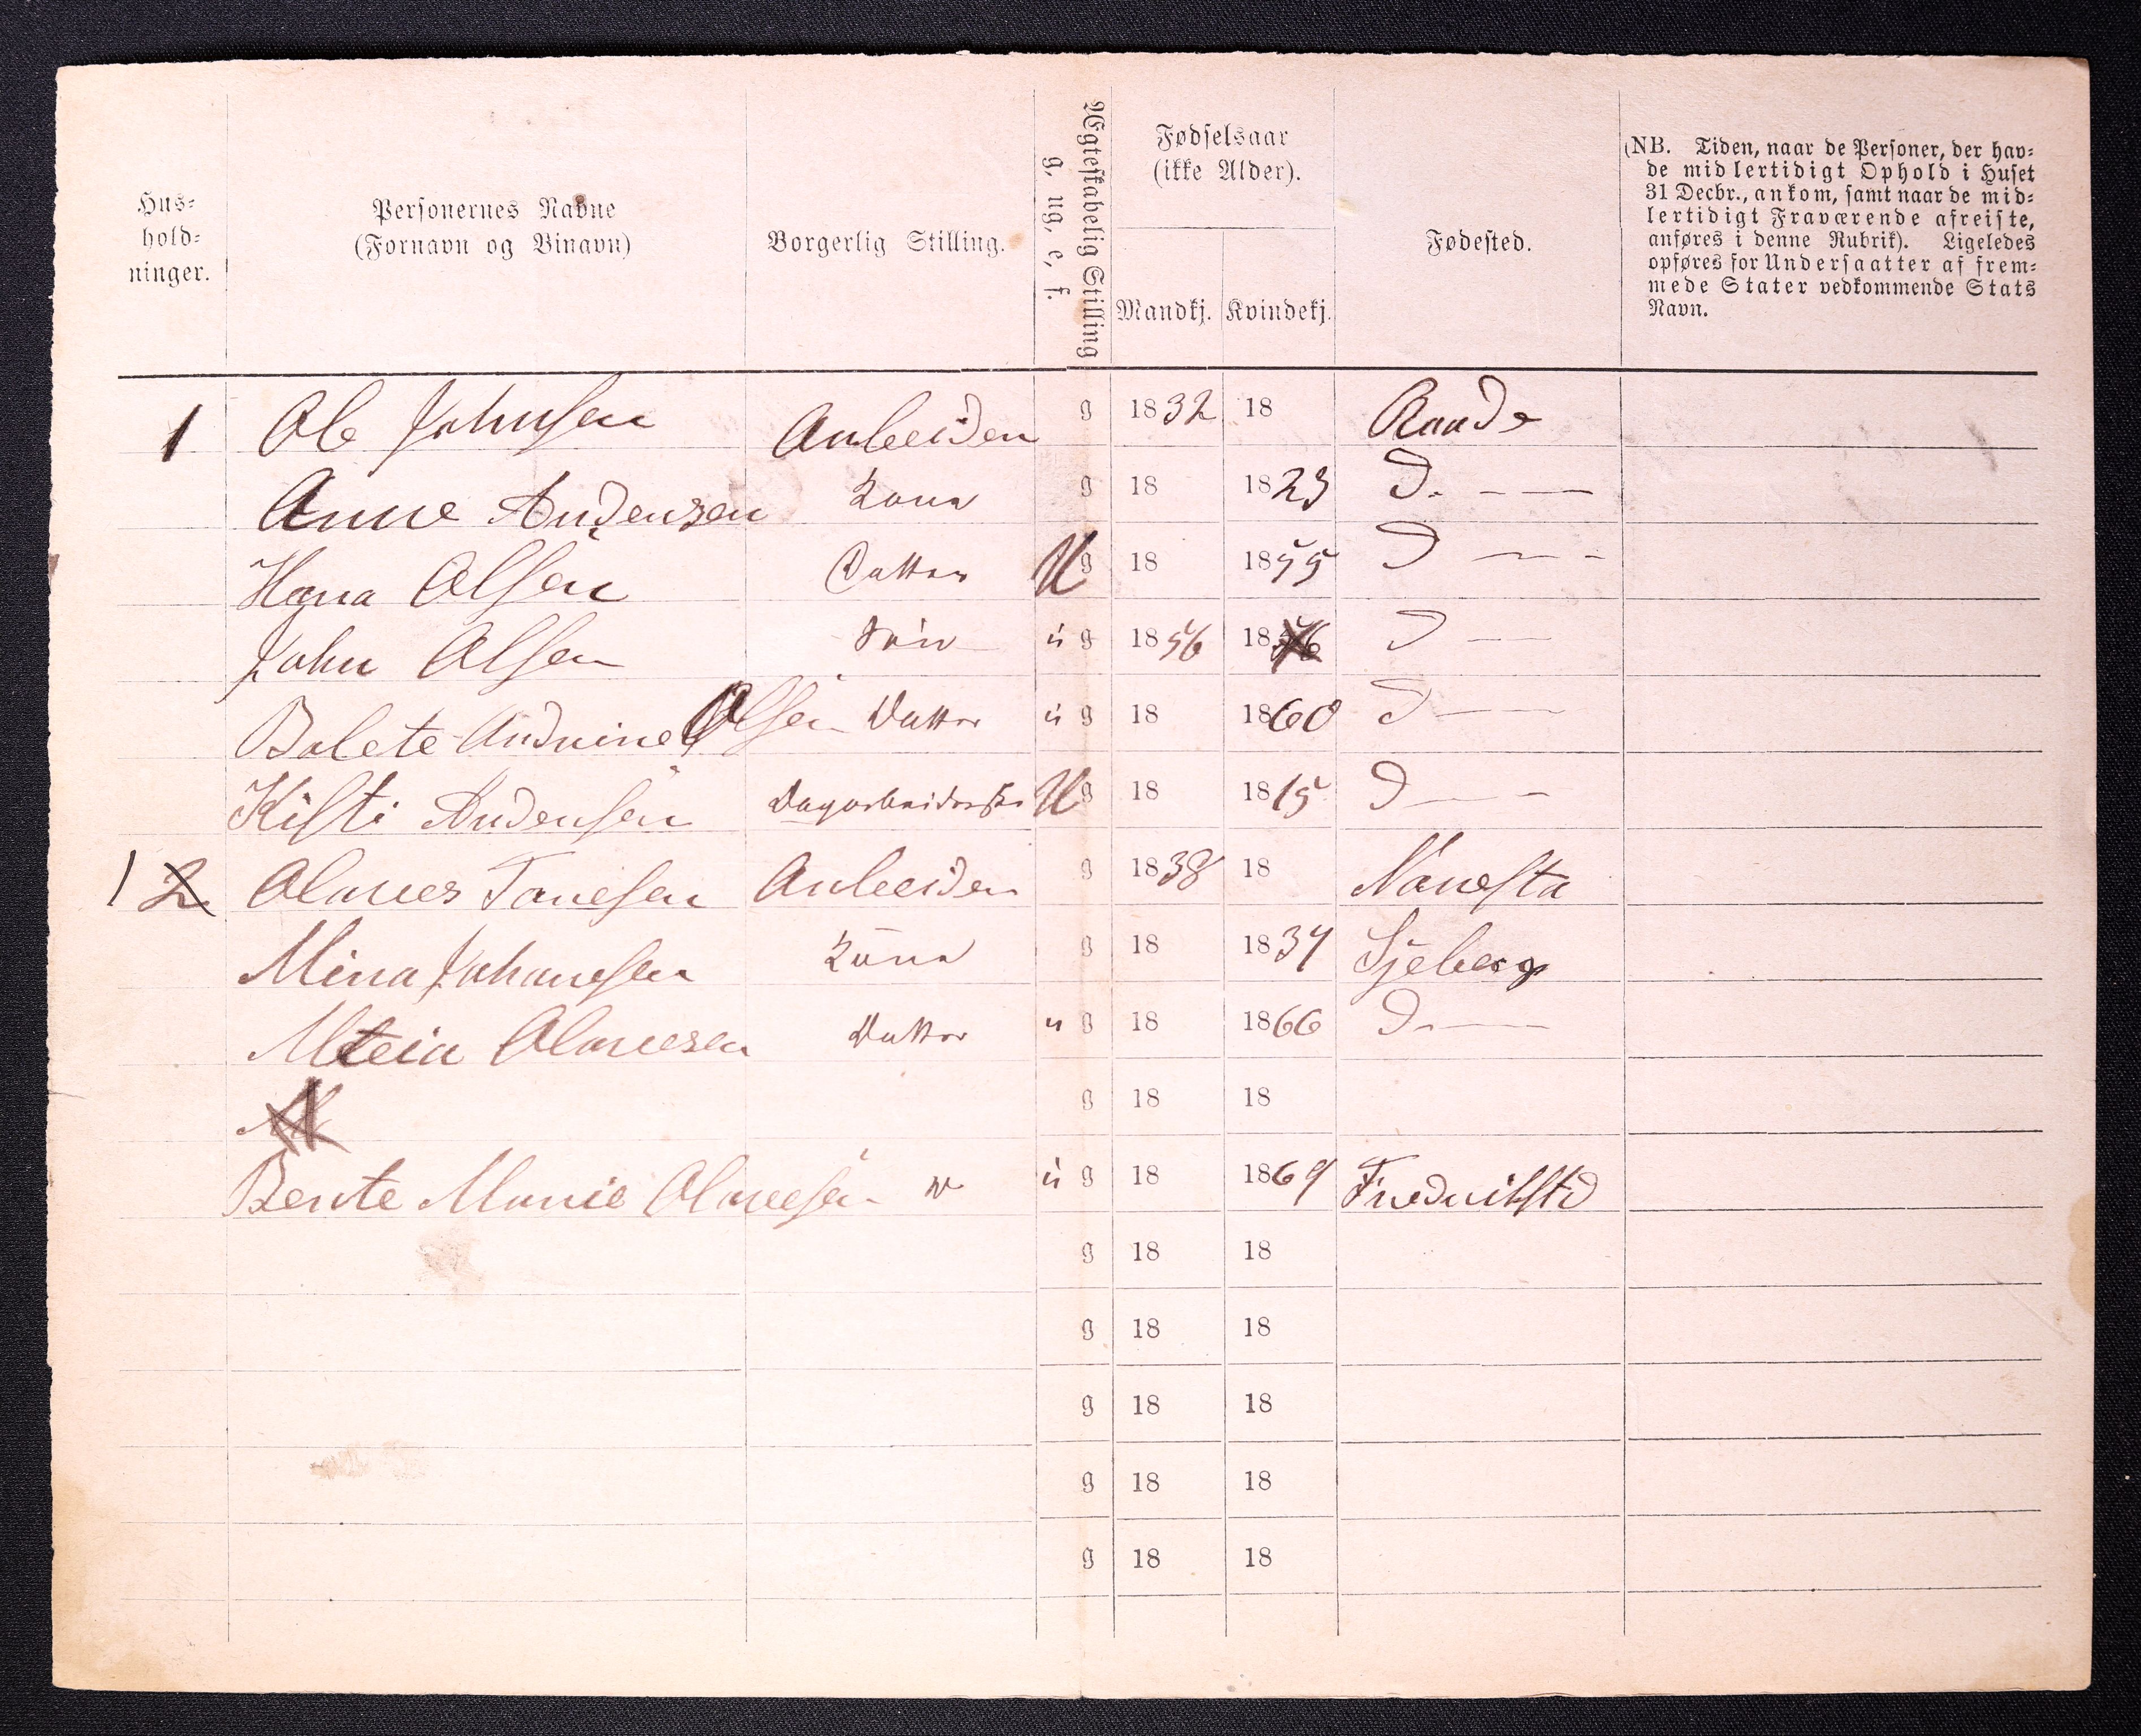 Hus-
hold-
ninger.
Personernes Navne
(Fornavn og Binavn)
Borgerlig Stilling.
Ægteskabelig Stilling
g, ug, e, f.
Fødselsaar
(ikke Alder).
Mandkj. Kvindekj.
Fødested.
(NB. Tiden, naar de Personer, der hav-
de midlertidigt Ophold i Huset
31 Decbr., ankom, samt naar de mid-
lertidigt Fraværende afreiste,
anføres i denne Rubrik). Ligeledes
opføres for Undersaatter af frem-
mede Stater vedkommende Stats
Navn.
1 Ole Johnsen Arbeider g 1832 18 Raade
Anne Andersen Kone g 18 1823 D. - — —
Hana Olsen Datter U g 18 1855 D — - -
John Olsen Søn u g 1856 1856 D — —
Bolete Andrine Olsen Datter u g 18 1860 D — —
Kisti Andersen Dagarbeiderske U g 18 1815 D — —
1 2 Olaves Tanesen Arbeider g 1838 18
Mina Johanesen Kone g 18 1834
Olavesen Datter u g 18 1866 D. —
g 18 18
Bente Marie Olavesen u g 18 1869 Fredrikstd
g 18 18
g 18 18
g 18 18
g 18 18
g 18 18